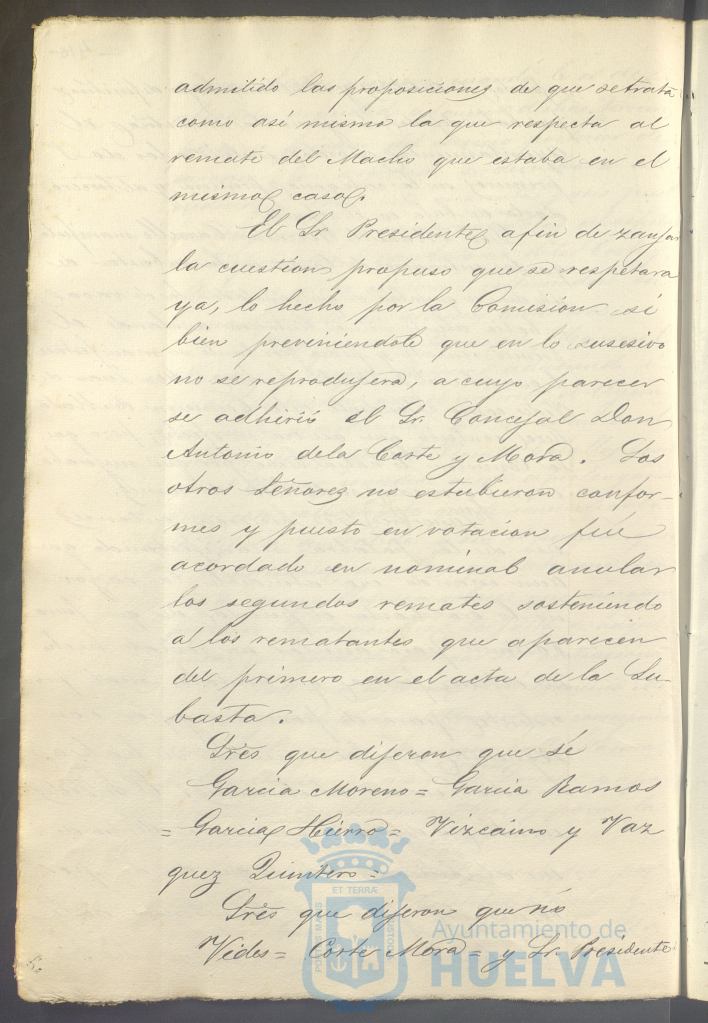 admitido las proposiciones de que se trata
como asi mismo la que respecta al
remate del Macho que estaba en el
mismo caso.
El Sr. Presidente a fin de zanjar
la cuestion propuso que se respetara
ya, lo hecho por la Comision si
bien previniendole que en lo susesivo
no se reprodujera, a cuyo parecer
se adhirió el Sr. Concejal Don
Antonio dela Corte y Mora. Los
otros Señores no estubieron confor-
mes y puesto en votacion fué
acordado en nominal anular
los segundos remates sosteniendo
á los rematantes que aparecen
del primero en el acta de la Su-
basta.
Srēs que dijeron que sé
Garcia Moreno = Garcia Ramos
= Garcia Hierro = Vizcaino y Vaz
quez Quintero =
Srēs que dijeron que nó
Vides = Corte Mora = y Sr. Presidente
ET TERRÆ
PORTUS MARIS
CUSTODIA
Ayuntamiento de
HUELVA